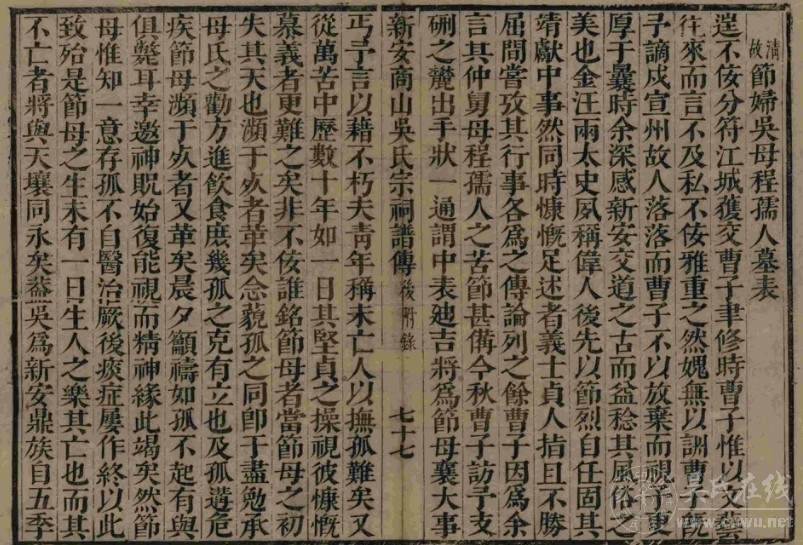 清故節婦吳母程孺人墓表
逞不佞分符江城獲交曹子聿修時曹子惟以
徃來而言不及私不佞雅重之然媿無以詶曹子既
予謫戍宣州故人落落而曹子不以放棄而視予更
厚于曩時余深感新安交道之古而益稔其風俗之
美也金汪兩太史夙稱偉人後先以節烈自任固其
靖獻中事然同時慷慨足述者義士貞人指且不勝
屈間嘗攷其行事各為之傳論列之餘曹子因為余
言其仲舅母程孺人之苦節甚備今秋曹子訪予支
硎之麓出手狀一通謂中表廸吉將為節母襄大事
新安商山吳氏宗祠譜傳 後附錄 七十七
丐予言以藉不朽夫靑年稱未亡人以撫孤難矣又
從萬苦中歷數十年如一日其堅貞之操視彼慷慨
慕義者更難之矣非不佞誰銘節母者當節母之初
失其天也瀕于死者革矣念藐孤之同卽于盡勉承
母氏之勸方進飮食庶幾孤之克有立也及孤遘危
疾節母瀕于死者又革矣晨夕籲禱如孤不起有與
俱斃耳幸邀神貺始復能視而精神緣此竭矣然節
母惟知一意存孤不自醫治厥後痰症屢作終以此
致殆是節母之生未有一日生人之樂其亡也而其
不亡者將與天壤同永矣葢吳為新安鼎族自五季
吳氏在線